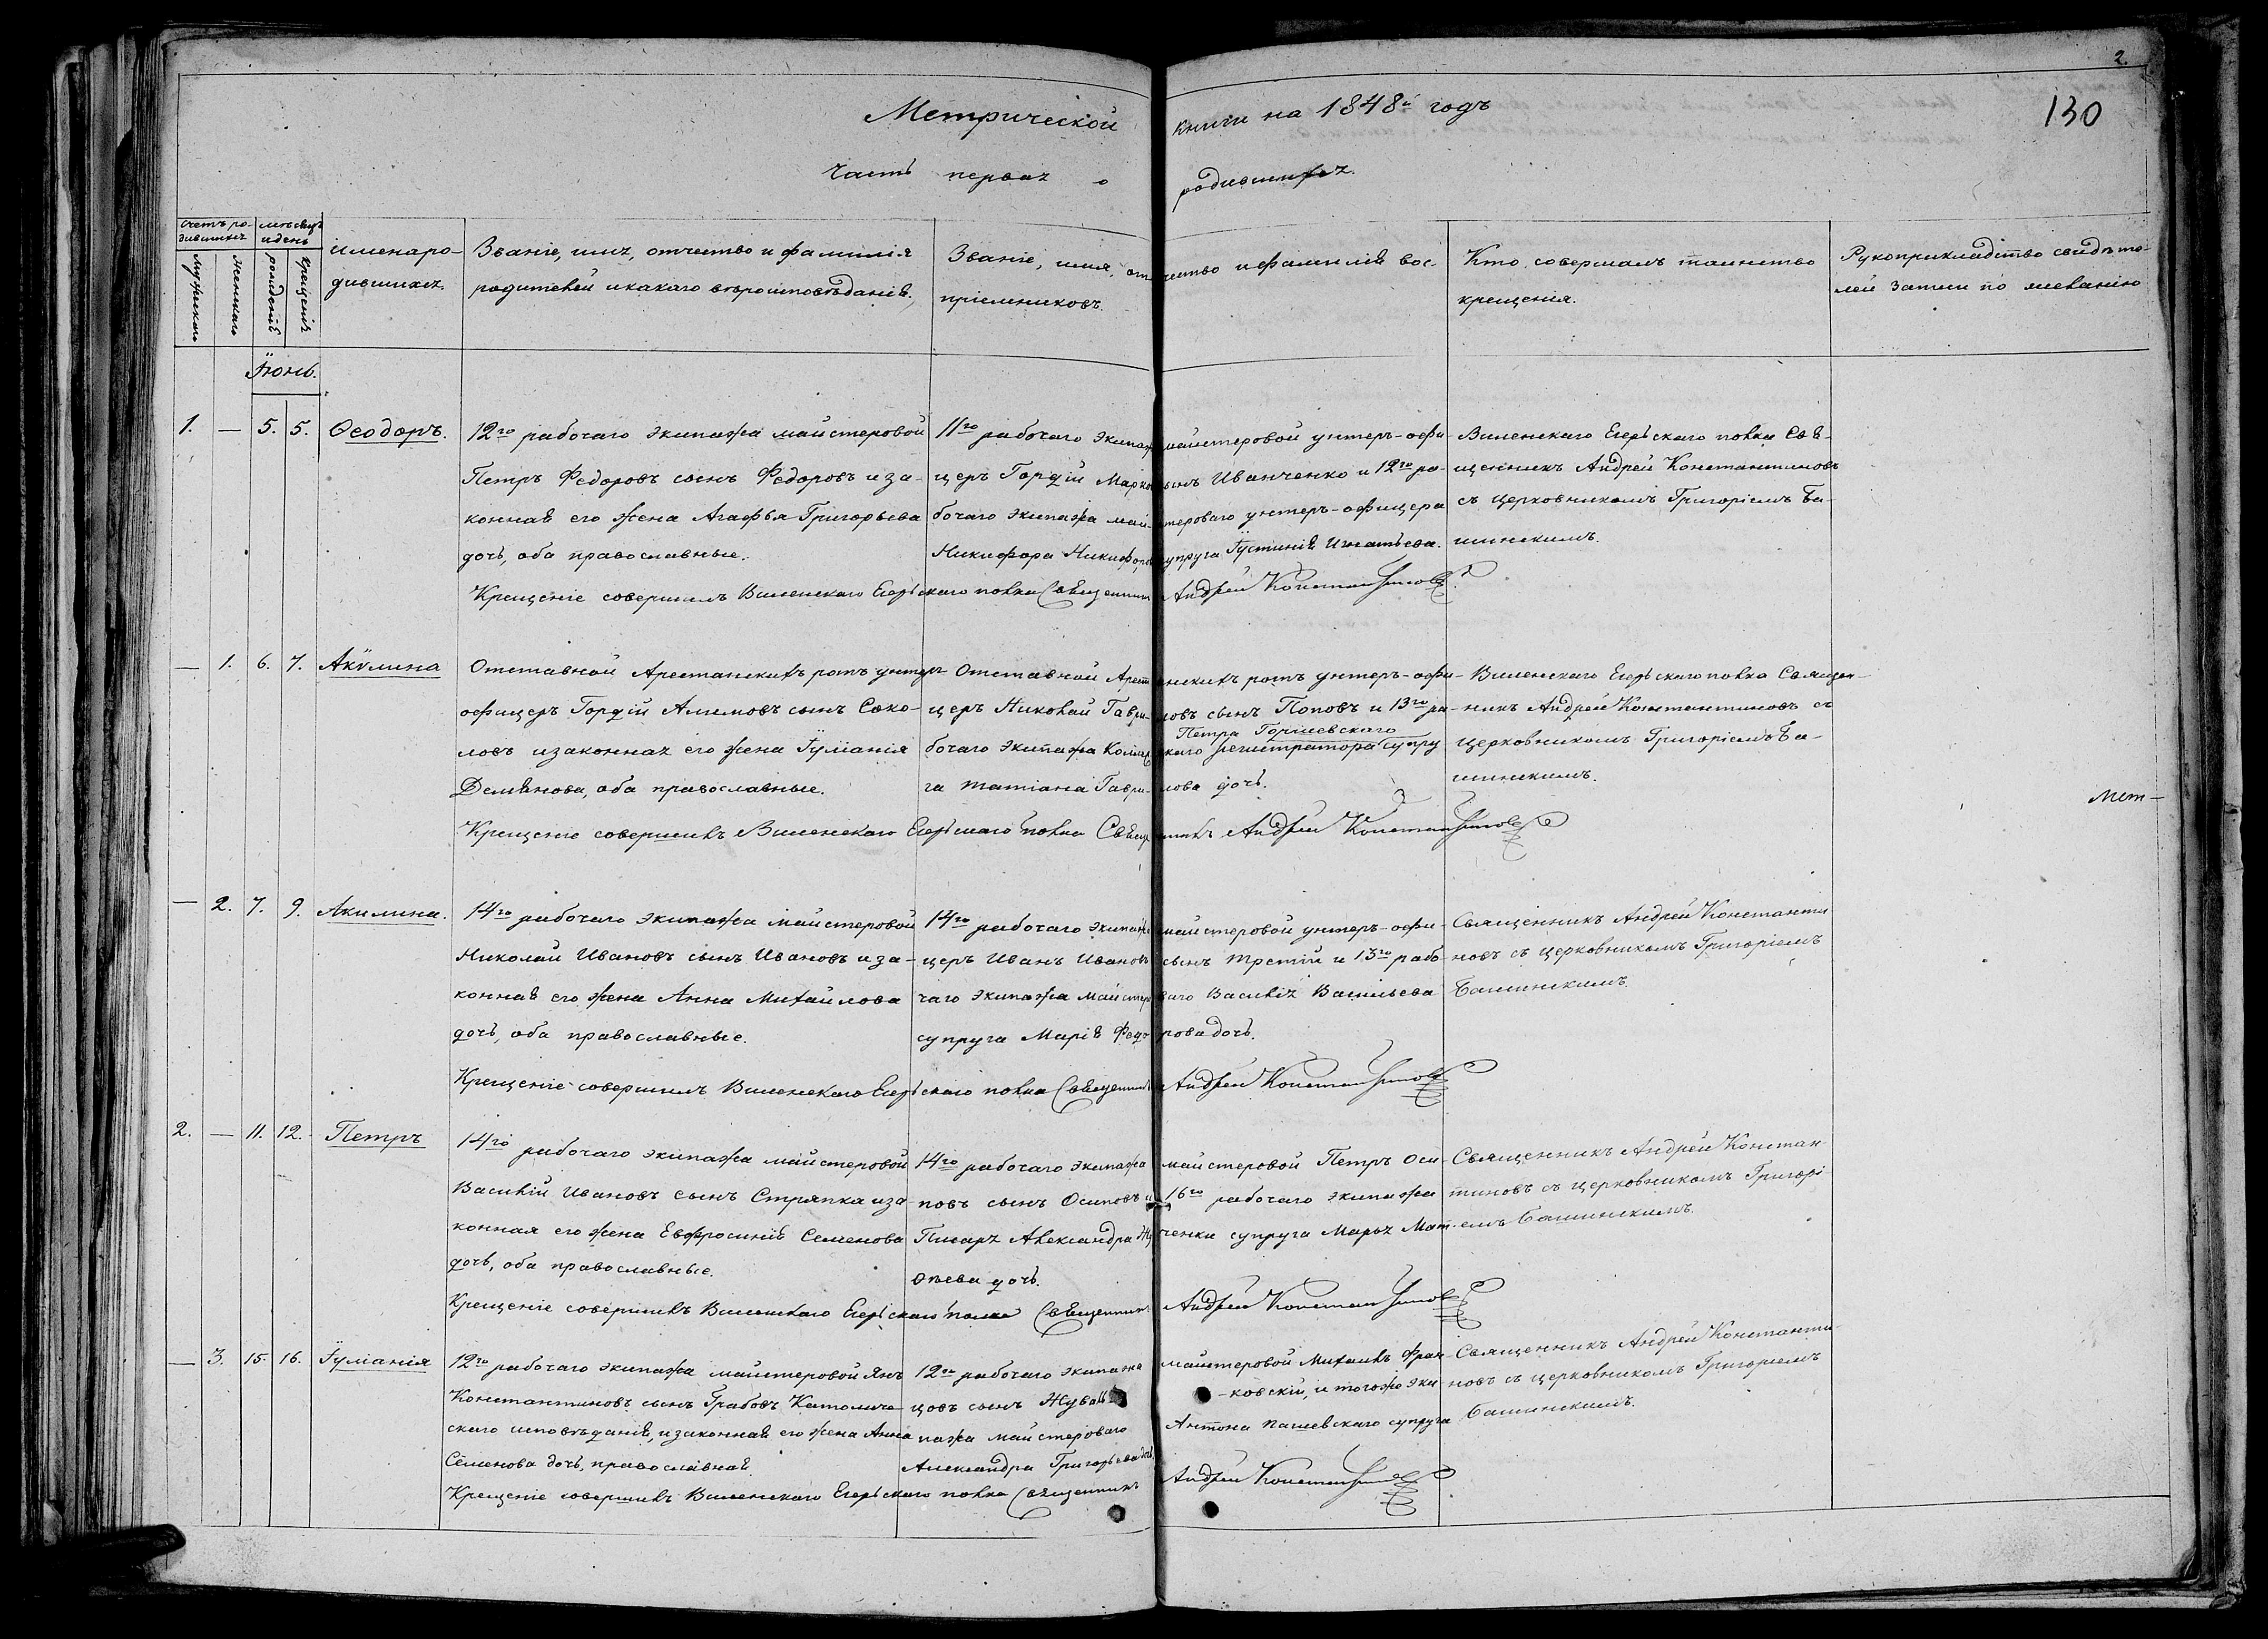 2.
130
Метрической книги на 1848й годъ
Часть первая о родившихся.
Счетъ родившихся
мужескаго
женскаго
мѣсяцъ и день
рожденія
крещенія
имена родившихся.
Званіе, имя, отчество и фамилія
родителей и какаго вѣроисповѣданія.
Званіе, имя, отчество и фамилія вос-
пріемниковъ.
Кто совершалъ таинство
крещенія.
Рукоприкладство свидѣте-
лей записи по желанію
Іюнь.
1. — 5. 5. Ѳеодоръ.
12го рабочаго экипажа майстеровой
Петръ Федоровъ сынъ Федоровъ и за-
конная его жена Агафья Григорьева
дочь, оба православные.
11го рабочаго экипажа майстеровой унтеръ-офи-
церъ Гордій Марковъ сынъ Иванченко и 12го ра-
бочаго экипажа майстероваго унтеръ-офицера
Никифора Никифорова супруга Іустинія Игнатьева.
Виленскаго Егерьскаго полка Свя-
щенникъ Андрей Константиновъ
съ церковникомъ Григоріемъ Ба-
шинскимъ.
Крещеніе совершилъ Виленскаго Егерьскаго полка Священникъ Андрей Константиновъ
— 1. 6. 7. Акѵлина
Отставной Арестанскихъ ротъ унтеръ-
офицеръ Гордій Алимовъ сынъ Соко-
ловъ и законная его жена Іуліанія
Демянова, оба православные.
Отставной Арестанскихъ ротъ унтеръ-офи-
церъ Николай Гавриловъ сынъ Поповъ и 13го ра-
Петра Горшевскаго
бочаго экипажа Коллежскаго регистратора супру
га Татіана Гаврилова дочь.
Виленскаго Егерьскаго полка Священ-
никъ Андрей Константиновъ съ
церковникомъ Григоріемъ Ба-
шинскимъ.
Мет-
Крещеніе совершилъ Виленскаго Егерьскаго полка Священникъ Андрей Константиновъ
— 2. 7. 9. Акилина.
14го рабочаго экипажа майстеровой
Николай Ивановъ сынъ Ивановъ и за-
конная его жена Анна Михайлова
дочь, оба православные.
14го рабочаго экипажа майстеровой унтеръ-офи-
церъ Иванъ Ивановъ сынъ Третій и 13го рабо-
чаго экипажа майстероваго Василія Васильева
супруга Марія Федорова дочь.
Священникъ Андрей Константи
новъ съ церковникомъ Григоріемъ
Башинскимъ.
Крещеніе совершилъ Виленскаго Егерьскаго полка Священникъ Андрей Константиновъ
2. — 11. 12. Петръ
14го рабочаго экипажа майстеровой
Василій Ивановъ сынъ Стряпка и за-
конная его жена Евфросинія Семенова
дочь, оба православные.
14го рабочаго экипажа майстеровой Петръ Оси-
повъ сынъ Осиповъ и 16го рабочаго экипажа
Писаря Александра супруга Марья Мат-
ѳѣева дочь.
Священникъ Андрей Констан-
тиновъ съ церковникомъ Григорі-
емъ Башинскимъ.
Крещеніе совершилъ Виленскаго Егерьскаго полка Священникъ Андрей Константиновъ
— 3. 15. 16. Іуліанія
12го рабочаго экипажа майстеровой Янъ
Константиновъ сынъ Грабовъ Католиче-
скаго исповѣданія, и законная его жена Анна
Семенова дочь, православная.
12го рабочаго экипажа майстеровой Михаилъ Фран-
цовъ сынъ -ковскій, и тогожъ эки-
пажа майстероваго Антона Пашевскаго супруга
Александра Григорьева дочь.
Священникъ Андрей Константи-
новъ съ церковникомъ Григоріемъ
Башинскимъ.
Крещеніе совершилъ Виленскаго Егерьскаго полка Священникъ Андрей Константиновъ